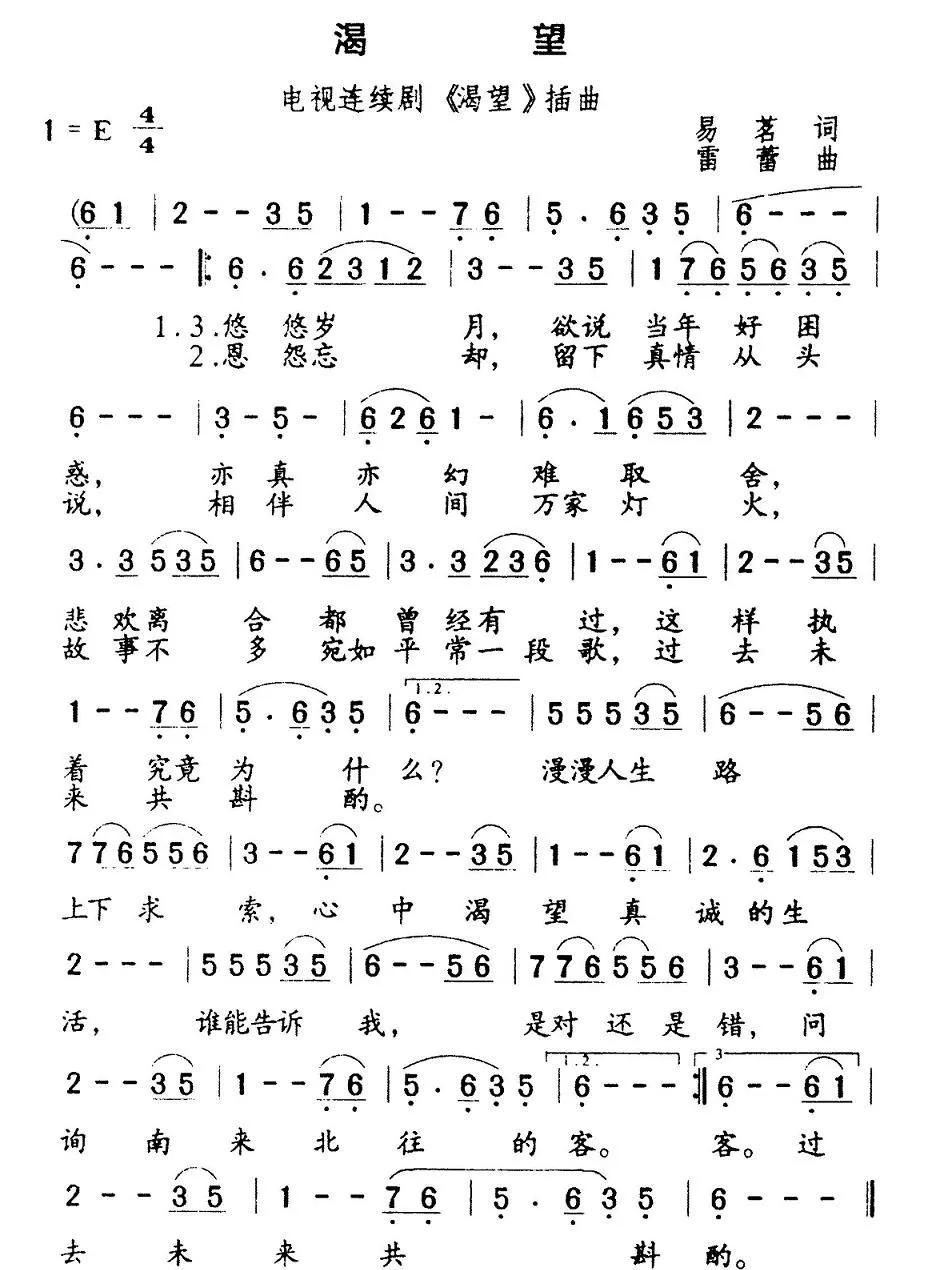 渴 望
电视连续剧《渴望》插曲
1 = E 4/4
易 茗 词
雷 蕾 曲
(6 1 | 2 - - 3 5 | 1 - - 7 6 | 5 . 6 3 5 | 6 - - - |
6 - - - |: 6 . 6 2 3 1 2 | 3 - - 3 5 | 1 7 6 5 6 3 5 |
1.3.悠 悠岁 月, 欲说 当年 好 困
2.恩 怨忘 却, 留下 真情 从 头
6 - - - | 3 - 5 - | 6 2 6 1 - | 6 . 1 6 5 3 | 2 - - - |
惑, 亦 真 亦 幻 难 取 舍,
说, 相 伴 人 间 万家 灯 火,
3 . 3 5 3 5 | 6 - - 6 5 | 3 . 3 2 3 6 | 1 - - 6 1 | 2 - - 3 5 |
悲 欢离 合 都 曾 经有 过, 这 样 执
故 事不 多 宛如 平 常一 段 歌, 过 去 未
1 - - 7 6 | 5 . 6 3 5 | 1.2. 6 - - - | 5 5 5 3 5 | 6 - - 5 6 |
着 究竟 为 什 么? 漫漫人生 路
来 共 斟 酌。
7 7 6 5 5 6 | 3 - - 6 1 | 2 - - 3 5 | 1 - - 6 1 | 2 . 6 1 5 3 |
上下 求 索, 心 中 渴 望 真 诚 的 生
2 - - - | 5 5 5 3 5 | 6 - - 5 6 | 7 7 6 5 5 6 | 3 - - 6 1 |
活, 谁能告诉 我, 是对 还 是 错, 问
2 - - 3 5 | 1 - - 7 6 | 5 . 6 3 5 | 1.2. 6 - - - :| 3 6 - - 6 1 |
询 南 来 北 往 的 客。 客。 过
2 - - 3 5 | 1 - - 7 6 | 5 . 6 3 5 | 6 - - - ‖
去 未 来 共 斟 酌。